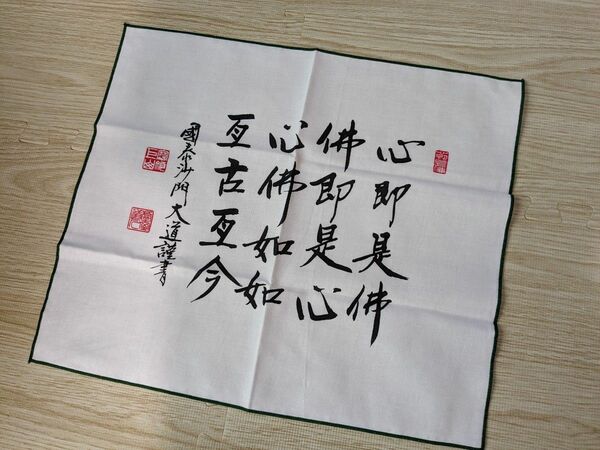 心即是佛
佛即是心
心佛如如
亙古亙今
國泰沙門大道謹書